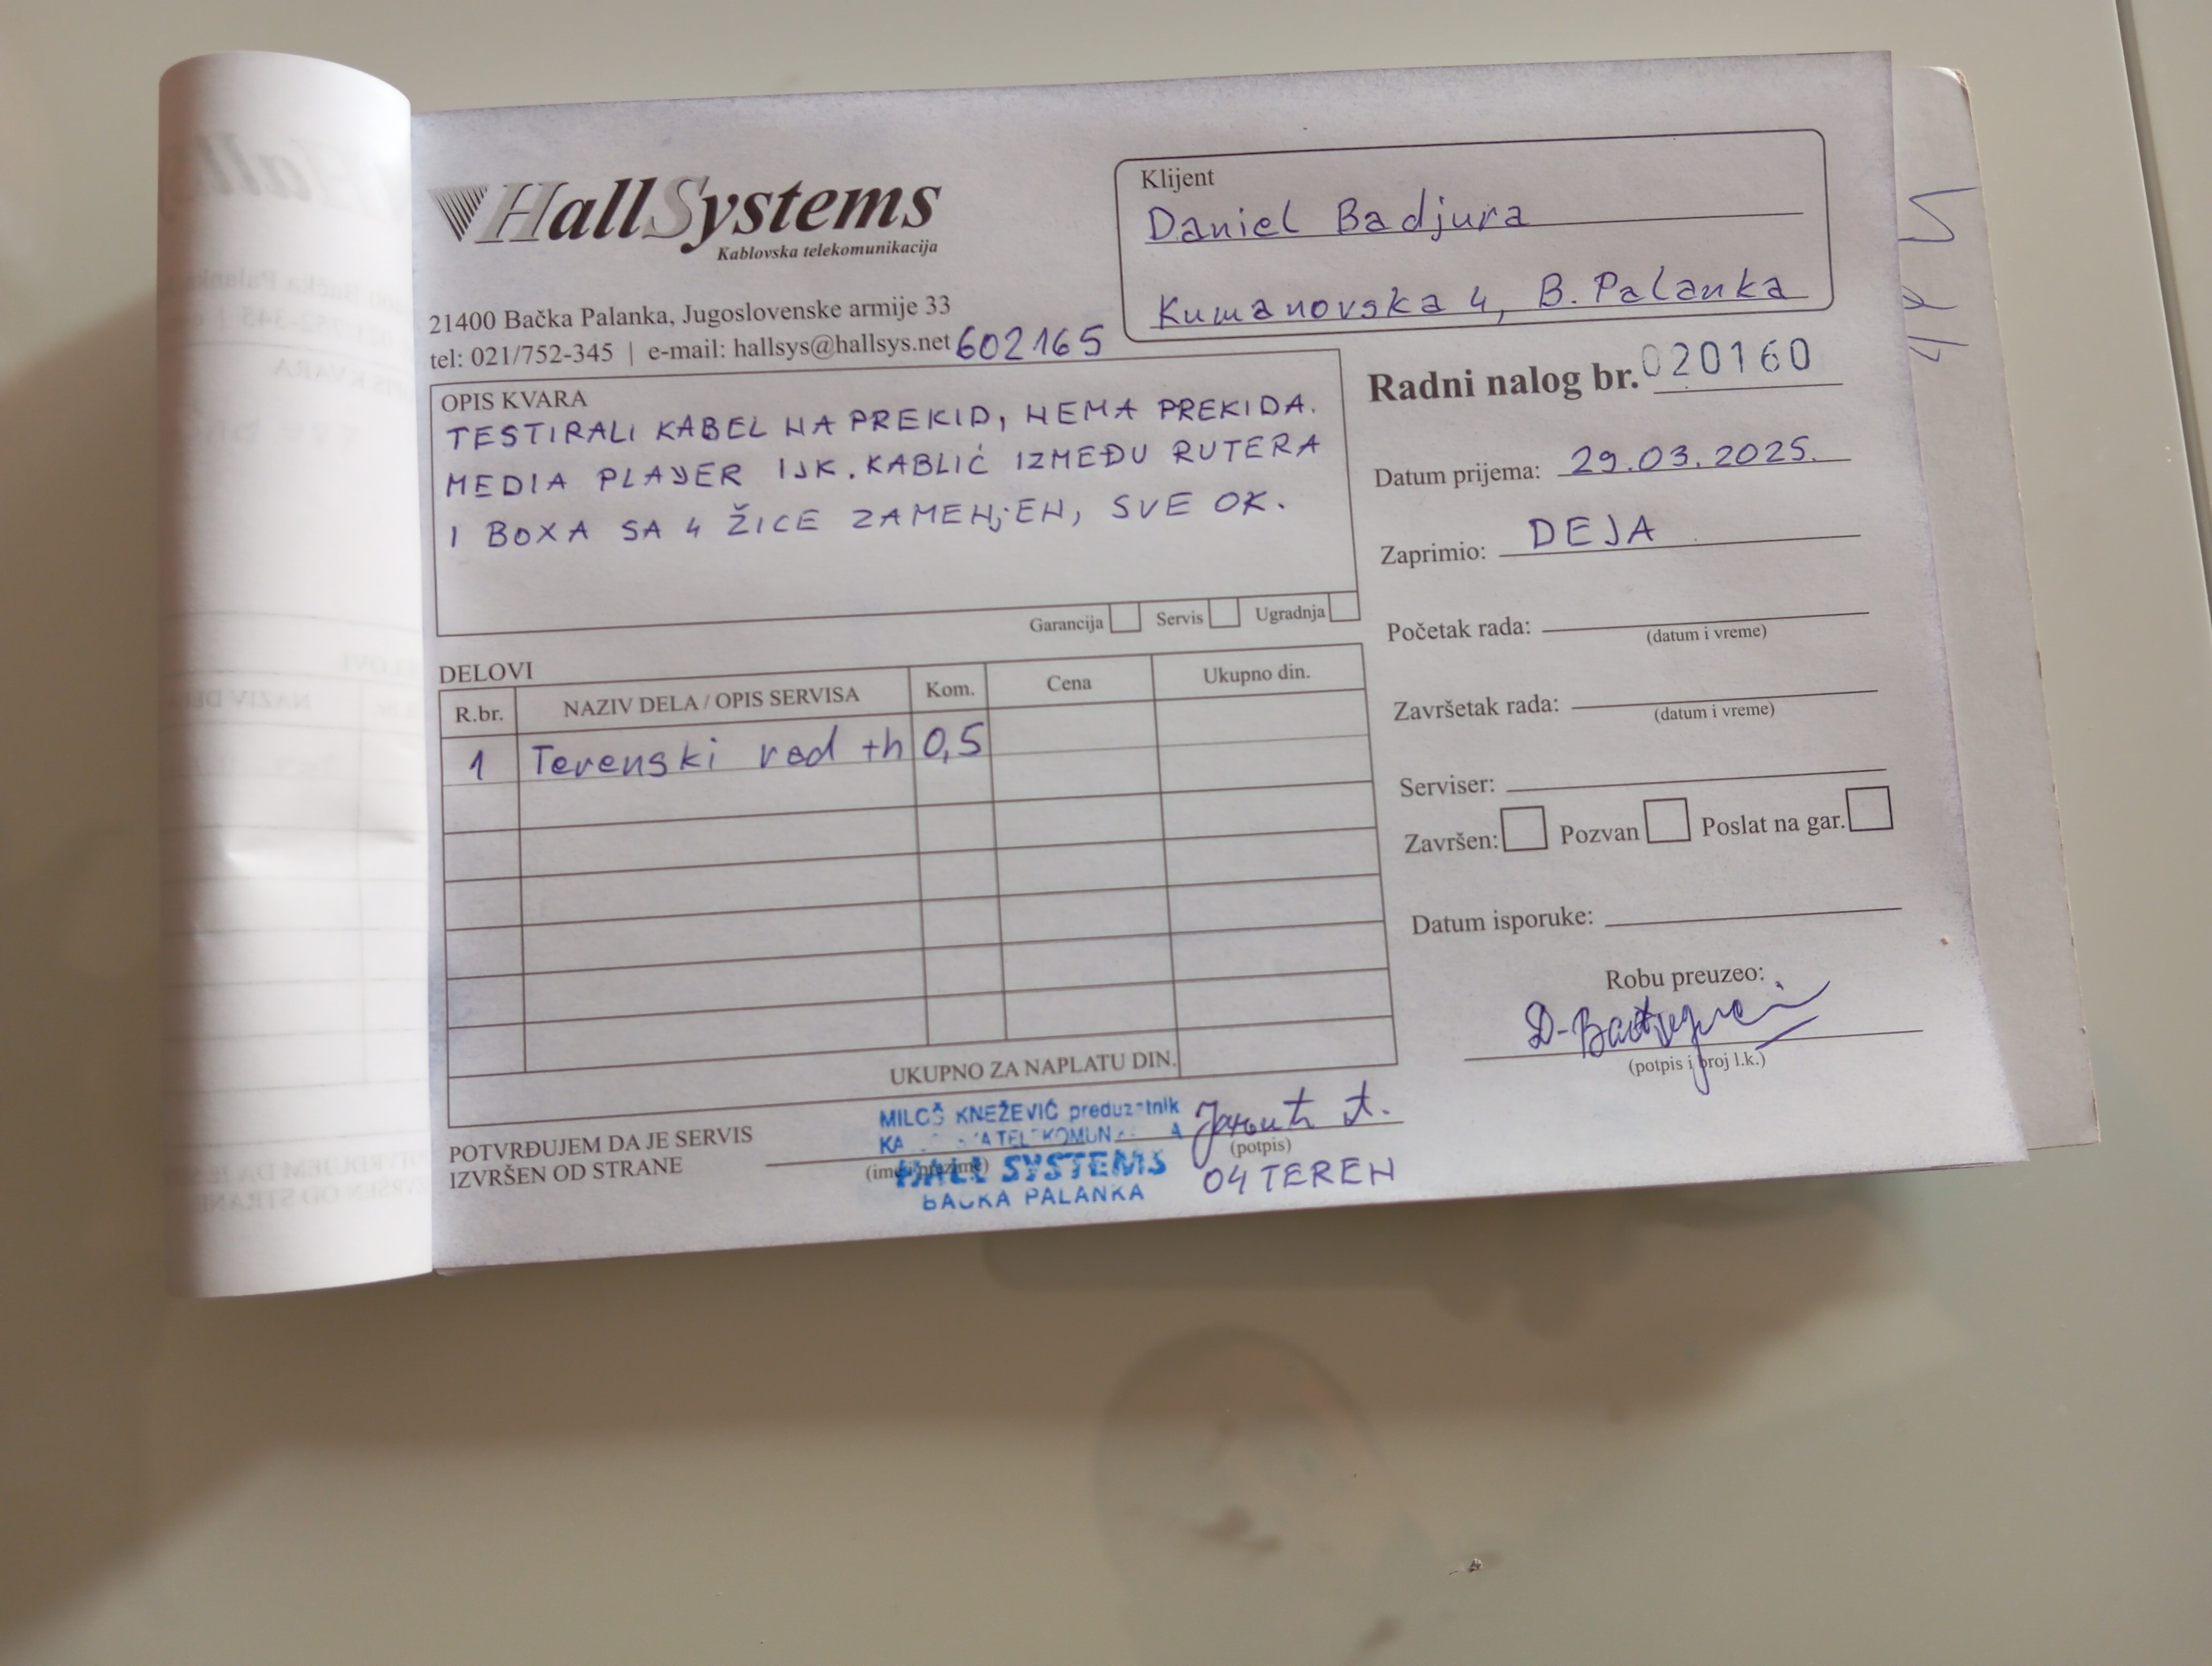 HallSystems
Kablovska telekomunikacija
21400 Bačka Palanka, Jugoslovenske armije 33
tel: 021/752-345 | e-mail: hallsys@hallsys.net 602165
Klijent
Daniel Badjura
Kumanovska 4, B. Palanka
OPIS KVARA
TESTIRALI KABEL NA PREKID, NEMA PREKIDA.
MEDIA PLAYER ISK. KABLIĆ IZMEĐU RUTERA
I BOXA SA 4 ŽICE ZAMENJEN, SVE OK.
Garancija Servis Ugradnja
Radni nalog br. 020160
Datum prijema: 29.03.2025.
Zaprimio: DEJA
Početak rada:
(datum i vreme)
Završetak rada:
(datum i vreme)
Serviser:
Završen: Pozvan Poslat na gar.
Datum isporuke:
Robu preuzeo:
D-Badjura
(potpis i broj l.k.)
DELOVI
R.br. NAZIV DELA / OPIS SERVISA Kom. Cena Ukupno din.
1 Terenski rad +h 0,5
UKUPNO ZA NAPLATU DIN.
POTVRĐUJEM DA JE SERVIS
IZVRŠEN OD STRANE
(ime i prezime)
MILOŠ KNEŽEVIĆ preduzetnik
HALL SYSTEMS
BAČKA PALANKA
(potpis)
04 TEREN
425